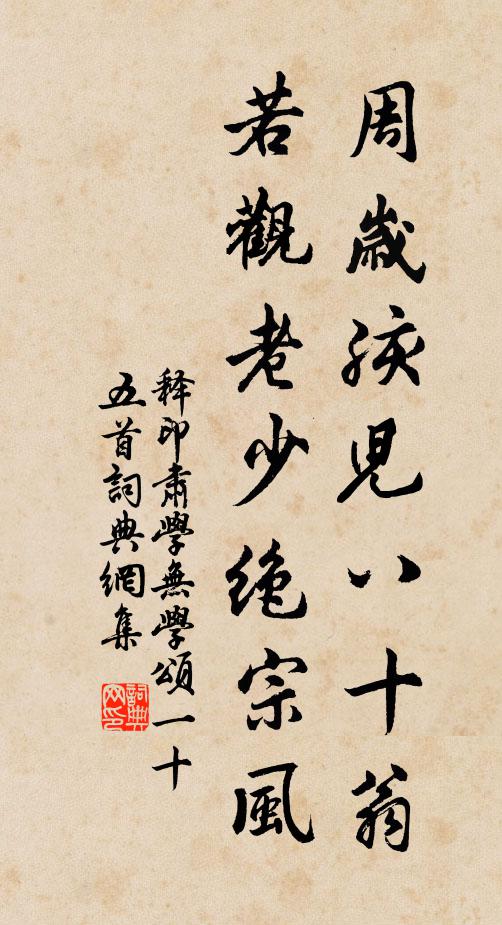 周歲孩兒八十翁
若觀老少絶宗風
释印肃學無學頌一十
五首詞典網集
詞典网印